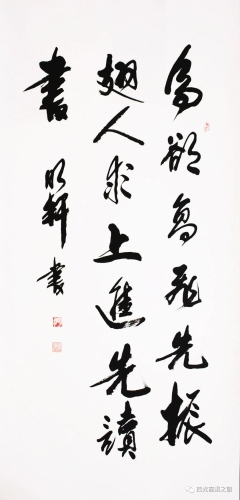 鸟欲高飛先振
翅人求上進先讀
書
明軒書